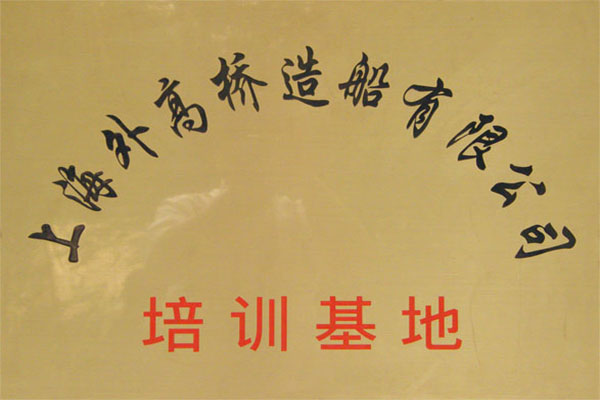 上海外高桥造船有限公司
培训基地